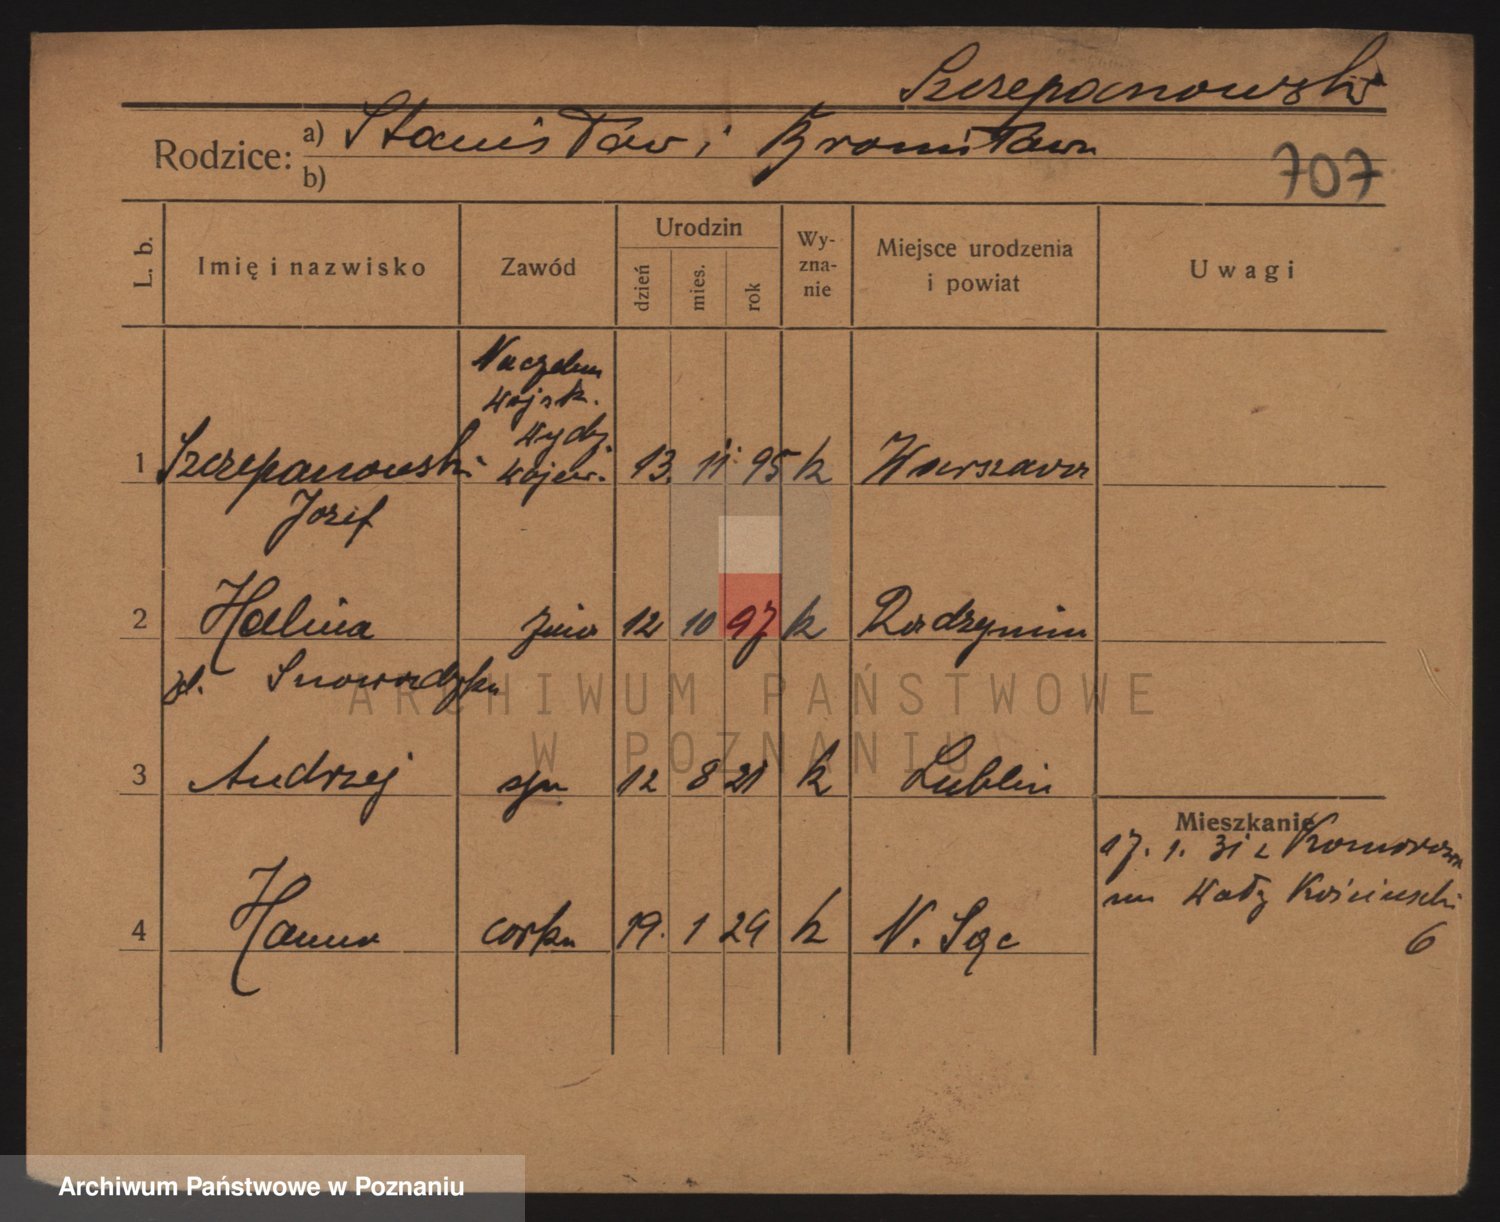 Szczepanowski
Rodzice: a) Stanisław i Bronisława
b)
707
L. b.
Imię i nazwisko
Zawód
Urodzin
dzień
mies.
rok
Wy-
zna-
nie
Miejsce urodzenia
i powiat
Uwagi
Naczelnik
wojsk.
wydz.
wojew.
1 Szczepanowski 13. 11. 95 k Warszawa
Józef
2 Halina żona 12 10 97 k Radzymin
ARCHIWUM PAŃSTWOWE
W POZNANIU
3 Andrzej syn 12 8 21 k Lublin
Mieszkanie
17. 1. 31 z
na Wały Kościuszki
6
4 Hanna corka 19. 1 29 k N. Sąc
Archiwum Państwowe w Poznaniu